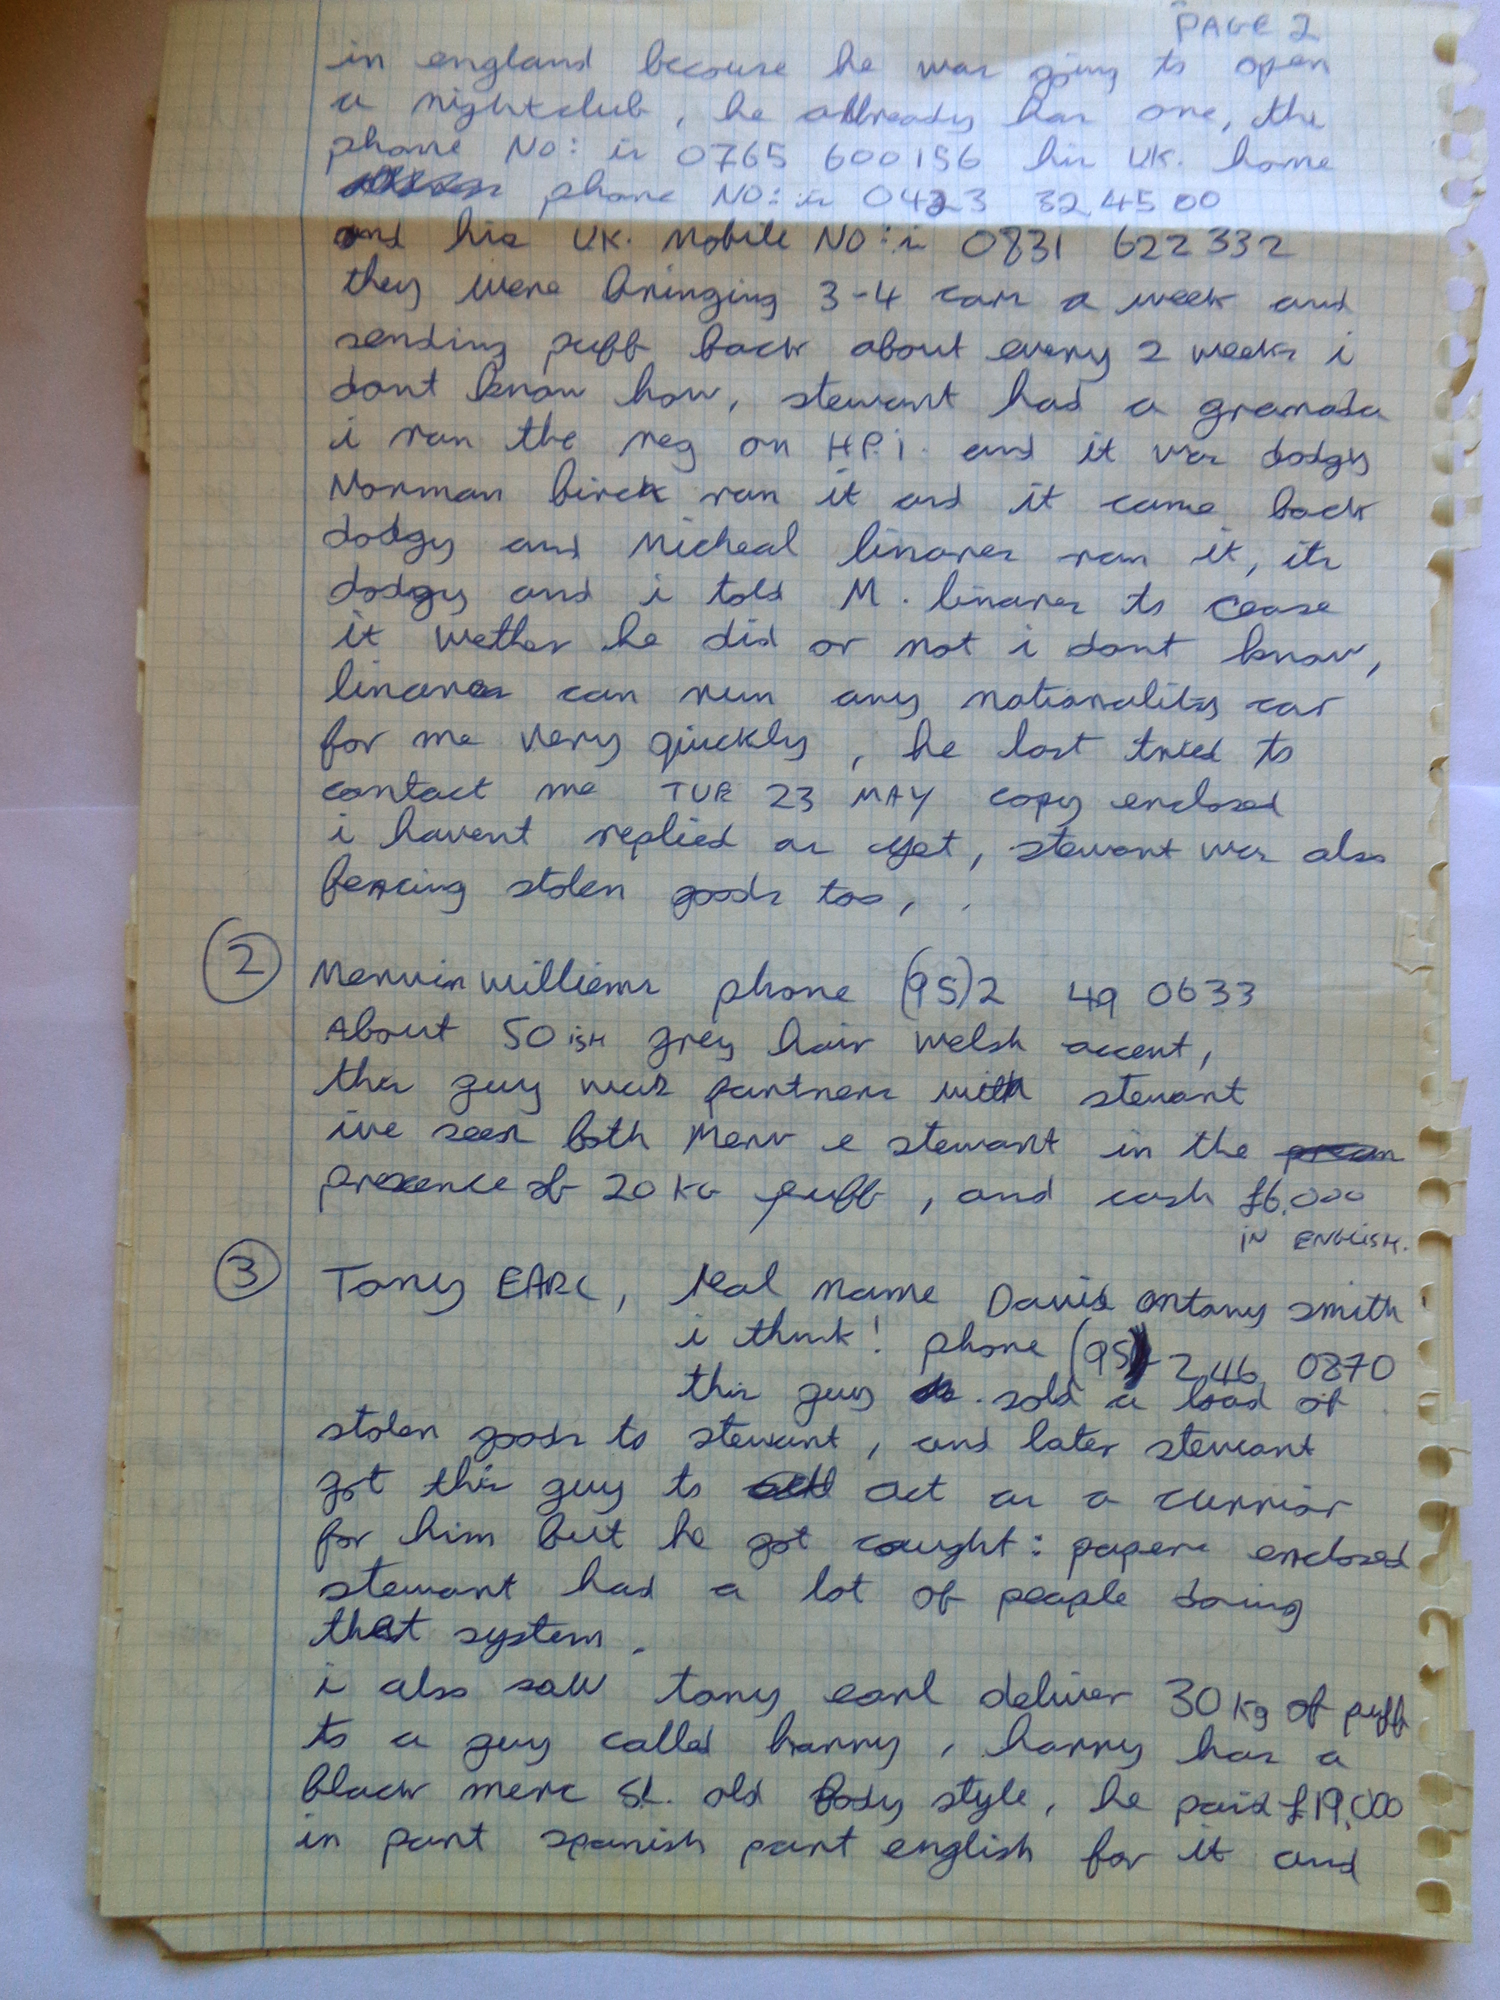 PAGE 2
in england becouse he was going to open
a nightclub, he allready has one, the
phone NO: is 0765 600156 his UK. home
phone NO: is 0423 324500
and his UK. Mobile NO: is 0831 622332
they were bringing 3-4 cars a week and
sending puff back about every 2 weeks i
dont know how, stewart had a granada
i ran the reg on H.P.i. and it was dodgy
Norman birck ran it and it came back
dodgy and Micheal linares ran it, its
dodgy and i told M. linares to cease
it wether he did or not i dont know,
linares can run any nationality car
for me very quickly, he last tried to
contact me TUE 23 MAY copy enclosed
i havent replied as yet, stewart was also
fencing stolen goods too,
② Mervin williams phone (95)2 49 0633
About 50 ISH grey hair welsh accent,
this guy was partners with stewart
ive seen both Merv e stewart in the
presence of 20 KG puff, and cash £6,000
IN ENGLISH.
③ Tony EARL, real name David antony smith
i think! phone (95) 246 0870
this guy sold a load of
stolen goods to stewart, and later stewart
got this guy to act as a currior
for him but he got caught: papers enclosed
stewart had a lot of people doing
that system.
i also saw tony earl deliver 30 Kg of puff
to a guy called harry, harry has a
black merc SL. old Body style, he paid £19,000
in part spanish part english for it and